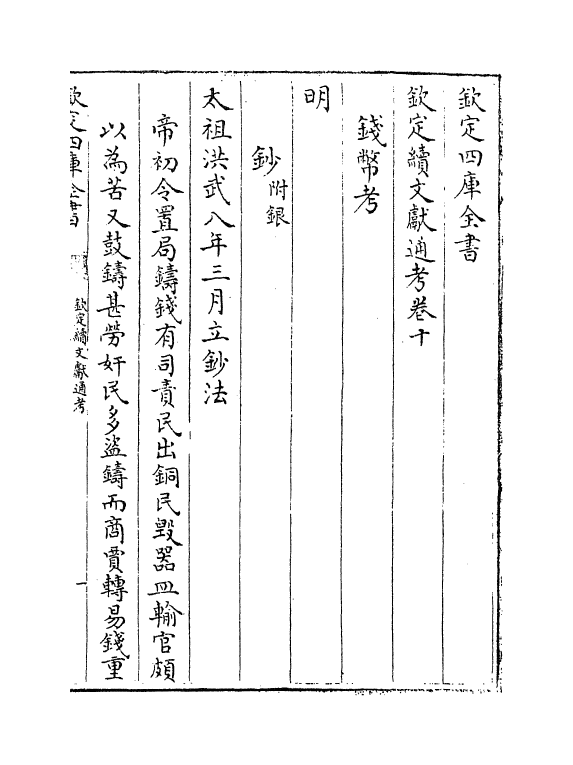 欽定四庫全書
欽定續文獻通考卷十
錢幣考
明
鈔附銀
太祖洪武八年三月立鈔法
帝初令置局鑄錢有司責民出銅民毀器皿輸官頗
以為苦又鼓鑄甚勞奸民多盜鑄而商賈轉易錢重
欽定四庫全書
欽定續文獻通考
一